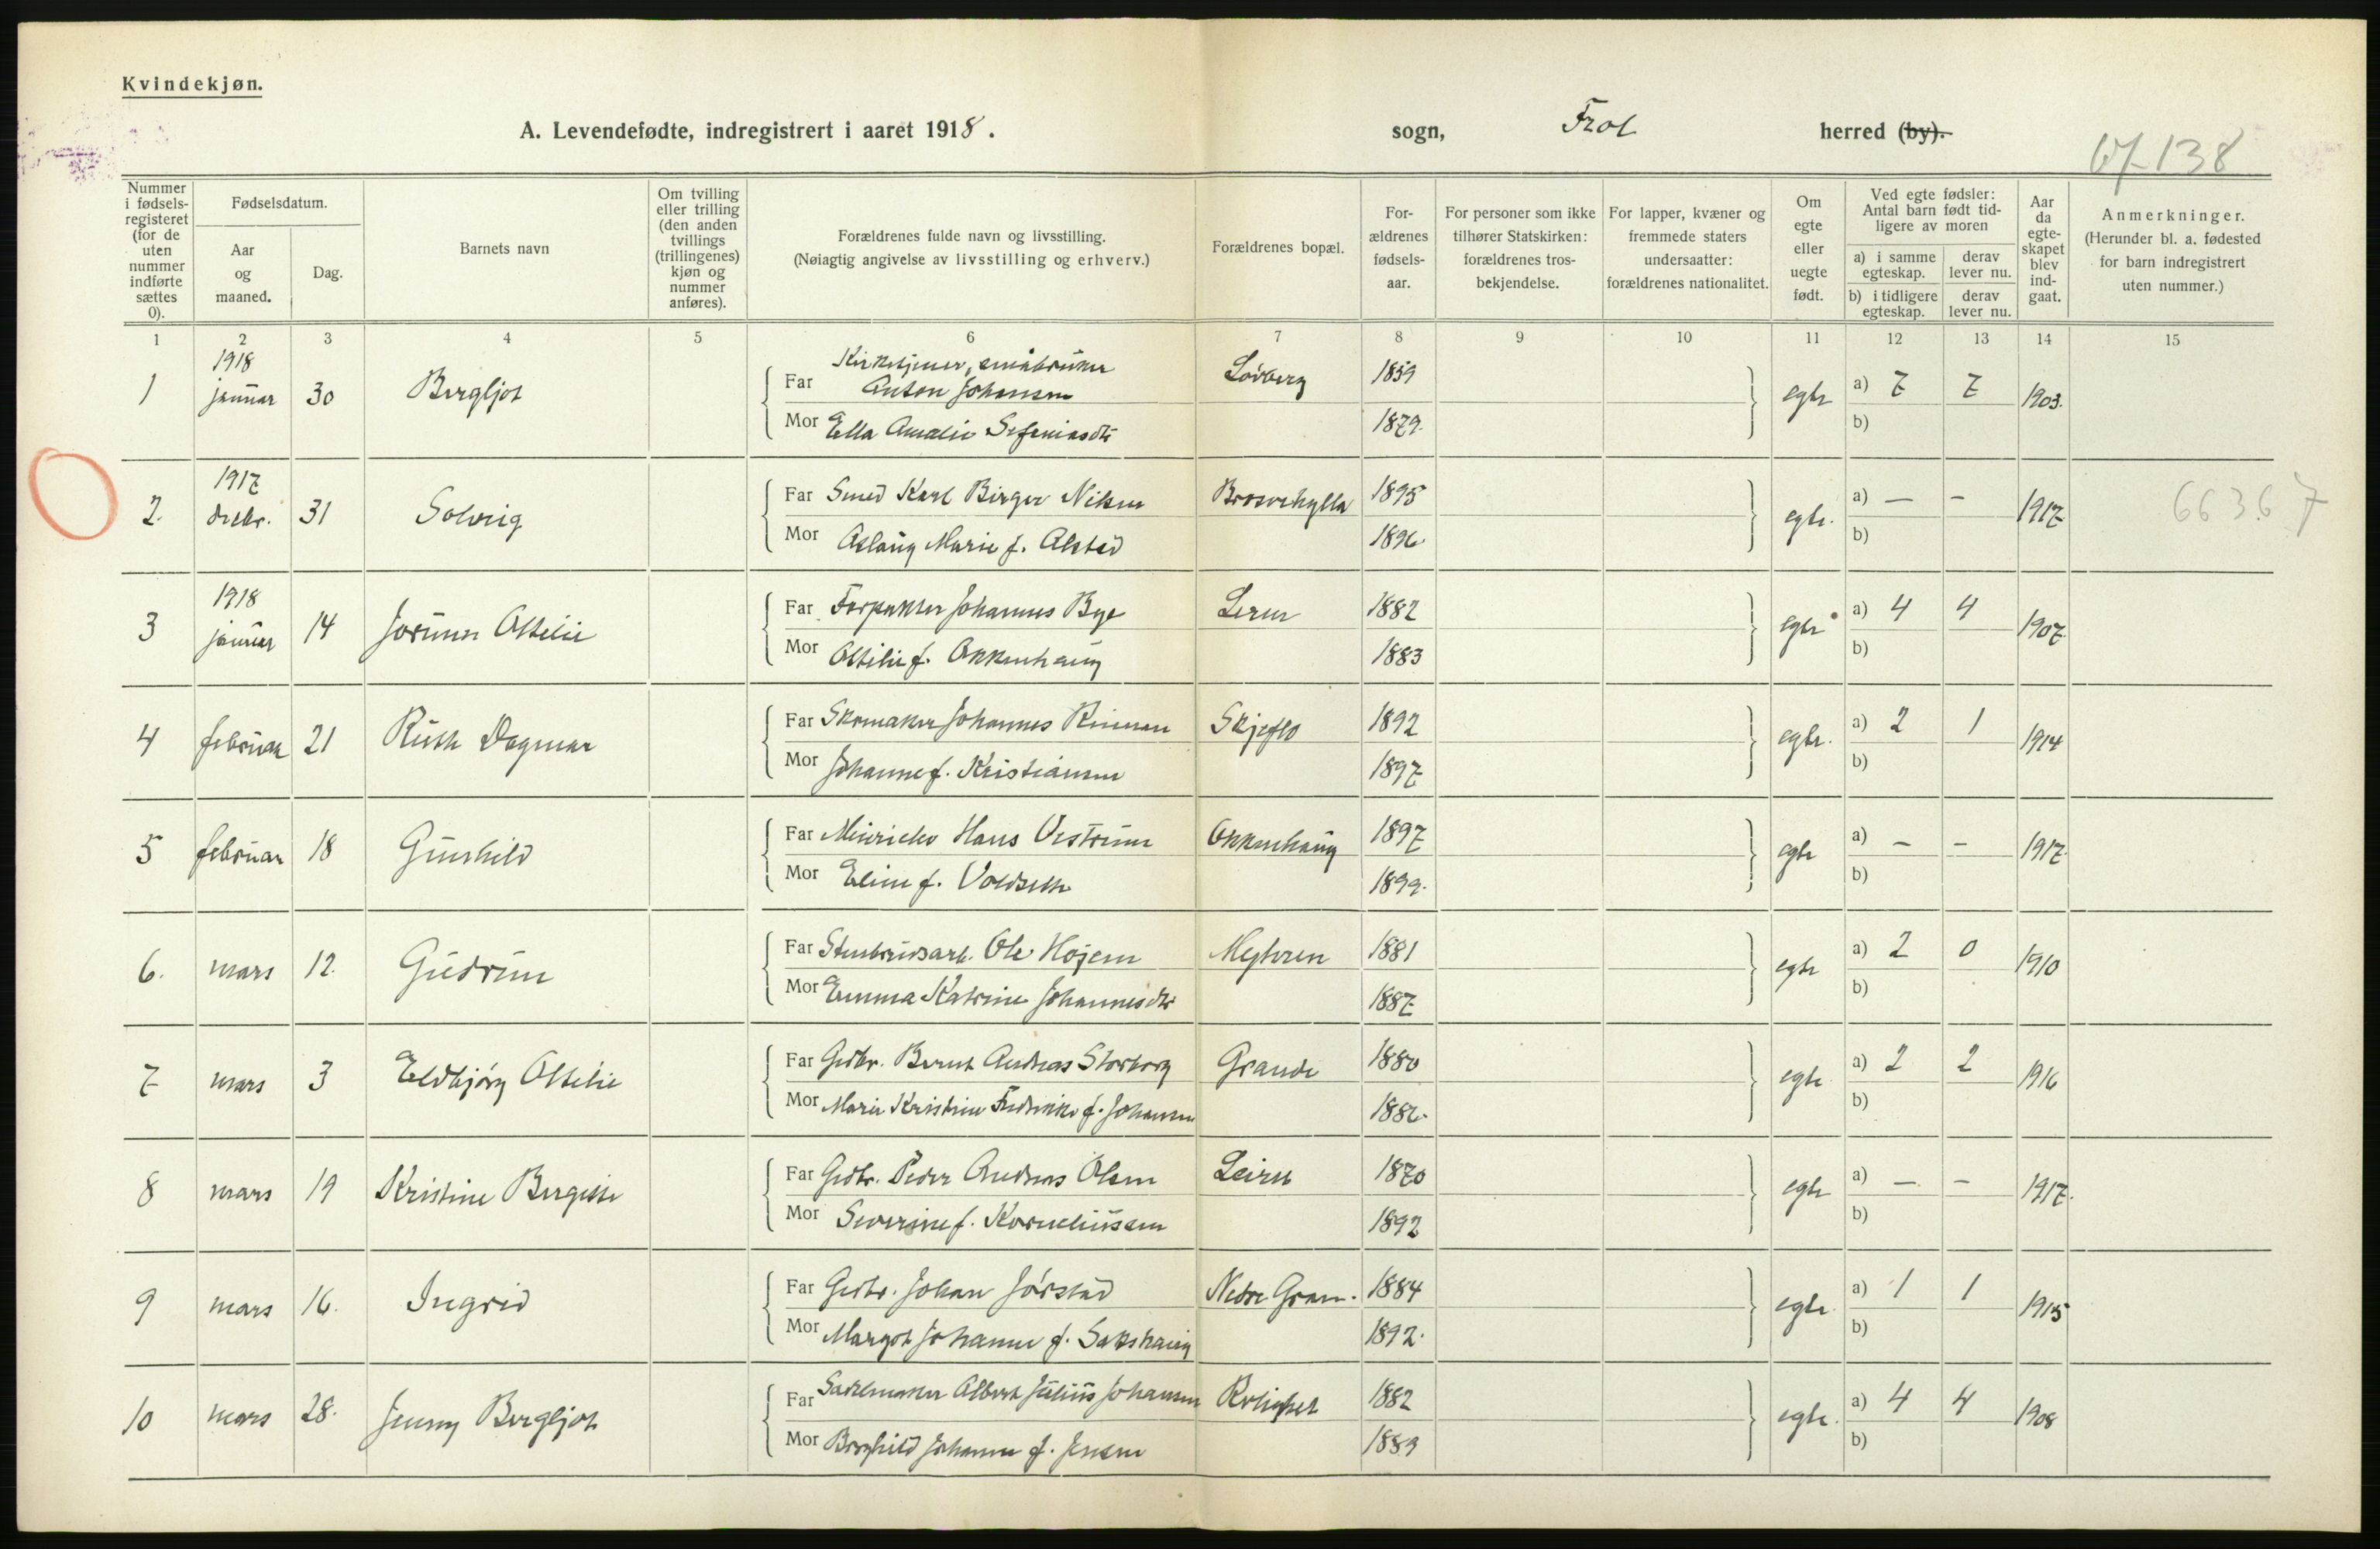 Kvindekjøn.
A. Levendefødte, indregistrert i aaret 1918. sogn, Frol herred (by).
138
Nummer i fødsels-registeret (for de uten nummer indførte sættes 0).
Fødselsdatum.
Aar og maaned.
Dag.
Barnets navn
Om tvilling eller trilling (den anden tvillings (trillingenes) kjøn og nummer anføres).
Forældrenes fulde navn og livsstilling.
(Nøiagtig angivelse av livsstilling og erhverv.)
Forældrenes bopæl.
For-ældrenes fødsels-aar.
For personer som ikke tilhører Statskirken: forældrenes tros-bekjendelse.
For lapper, kvæner og fremmede staters undersaatter: forældrenes nationalitet.
Om egte eller uegte født.
Ved egte fødsler: Antal barn født tid-ligere av moren
a) i samme egteskap. derav lever nu.
b) i tidligere egteskap. derav lever nu.
Aar da egte-skapet blev ind-gaat.
Anmerkninger.
(Herunder bl. a. fødested for barn indregistrert uten nummer.)
1 2 3 4 5 6 7 8 9 10 11 12 13 14 15
1918
Kirketjener, småbruker
1 januar 30 Bergljot Far Anton Johansen Lovberg 1859 egte a) 7 7 1903.
Mor Ella Amalie Sefeniasdtr 1879. b)
1917
2. decbr. 31 Solveig Far Smed Karl Birger Nilsen 1895 egte. a) — – 1917 66367
Mor Aslaug Marie f. Alstad 1896. b)
1918
3 januar 14 Jorunn Otelie Far Forpakter Johannes Bye Leren 1882 egte a) 4 4 1907.
Mor Otilie f. Okkenhaug 1883 b)
4 februar 21 Ruth Dagmar Far Skomaker Johannes Rinnan Skjeflo 1892 egte. a) 2 1 1914
Mor Johanne f. Kristiansen 1897 b)
5 februar 18 Gunhild Far Hans Okkenhaug 1897 egte a) – – 1917.
Mor Eline f. Voldseth 1899. b)
6. mars 12. Gudrun Far Stenbrudsarb. Ole Højem 1881 egte a) 2 0 1910
Mor Emma Katrine Johannesdtr 1887 b)
7 mars 3 Eldbjørg Otelie Far Grdbr. Bernt Andreas Storborg Grande 1880 egte a) 2 2 1916
Mor Marie Kristine Fredrikke f. Johansen b)
8 mars 19 Kristine Bergitte Far Grdbr. Peder Andreas Olsen 1870 egte a) — – 1917.
Mor Severine f. Korneliussen 1892 b)
9 mars 16. Ingrid Far Grdbr. Johan Jørstad Nedre Gran. 1884 egte. a) 1 1 1915
Mor Margot Johanne f. Sakshaug 1892. b)
10 mars 28. Jenny Bergljot Far Sadelmaker Albert Julius Johansen Rolighet 1882 egte. a) 4 4 1908
Mor Borghild Johanne f. Jensen 1889 b)